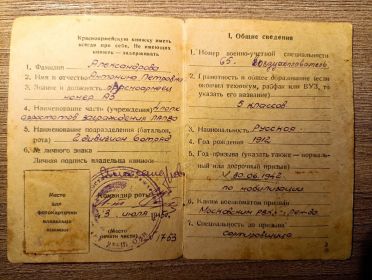 Красноармейскую книжку иметь
всегда при себе. Не имеющих
книжек — задерживать.
1. Фамилия Александрова
2. Имя и отчество Антонина Петровна
3. Звание и должность красноармеец
номер АЗ
4. Наименование части (учреждения)
аэростатов заграждения
5. Наименование подразделения (батальон,
рота) 2 дивизион
6. № личного знака
Личная подпись владельца книжки
Место
для
фотокарточки
владельца
книжки
Командир роты
3 июля
(Место
печати части)
I. Общие сведения
1. Номер военно-учетной специальности
65.
2. Грамотность и общее образование (если
окончил техникум, рабфак или ВУЗ, то
указать его название)
5 классов
3. Национальность Русская
4. Год рождения 1912
5. Год призыва (указать также — нормаль-
ный или досрочный призыв)
30.06.1942
по мобилизации
6. Каким военкоматом призван
Московским РВК
7. Специальность до призыва
сортировщица